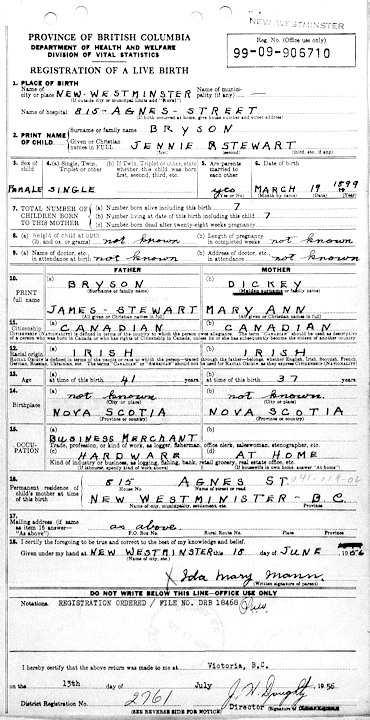 NEW WESTMINSTER
PROVINCE OF BRITISH COLUMBIA
DEPARTMENT OF HEALTH AND WELFARE
DIVISION OF VITAL STATISTICS
REGISTRATION OF A LIVE BIRTH
Reg. No. (Office use only)
99-09-906710
1. PLACE OF BIRTH
Name of city or place NEW-WESTMINSTER Name of municipality (if any) —
(If outside city or municipal limits add "Rural")
Name of hospital 815-AGNES-STREET
(If birth occurred at home, give house number and street address)
2. PRINT NAME OF CHILD
Surname or family name BRYSON
Given or Christian names in FULL JENNIE STEWART
(first) (second) (third, etc. if any)
3. Sex of child FEMALE
4. (a) Single, Twin, Triplet or other, state SINGLE
(b) If Twin, Triplet or other, state whether this child was born first, second, third, etc.
5. Are parents married to each other yes (Yes or No)
6. Date of birth MARCH 19 1899
(Month by name) (Day) (Year)
7. TOTAL NUMBER OF CHILDREN BORN TO THIS MOTHER
(a) Number born alive including this birth 7
(b) Number living at date of this birth including this child 7
(c) Number born dead after twenty-eight weeks pregnancy
8. (a) Weight of child at birth (lb. and oz. or grams) not known
(b) Length of pregnancy in completed weeks not known
9. (a) Name of doctor, etc. in attendance at birth not known
(b) Address of doctor, etc. in attendance not known
FATHER MOTHER
10. PRINT full name
(a) BRYSON (b) DICKEY
(Surname or family name) (Maiden surname or family name)
JAMES-STEWART MARY ANN
(All given or Christian names in full) (All given or Christian names in full)
11. Citizenship (a) CANADIAN (b) CANADIAN
12. Racial origin (a) IRISH (b) IRISH
13. Age (a) at time of this birth 41 years (b) at time of this birth 37 years.
14. Birthplace (a) not known (b) not known.
(City or place) (City or place)
NOVA SCOTIA NOVA SCOTIA
(Province or country) (Province or country)
15. OCCUPATION
(a) BUSINESS MERCHANT (b)
Trade, profession, or kind of work, as logger, fisherman, office clerk, saleswoman, stenographer, etc.
(c) HARDWARE (d) AT HOME
Kind of industry or business, as logging, fishing, bank, retail grocery, real estate office, etc.
(If labourer, specify kind of work above) (If housewife in own home, answer "At home")
16. Permanent residence of child's mother at time of this birth
815 AGNES ST.
House No. Name of street or road
NEW WESTMINISTER-B.C.
Name of city, municipality, settlement, etc. Province
17. Mailing address (if same as item 16 answer— "As above") as above.
P.O. Box No. Rural Route No. Place Province
18. I certify the foregoing to be true and correct to the best of my knowledge and belief.
Given under my hand at NEW WESTMINSTER this 18 day of JUNE 1956
(Name of city, etc.)
X Ida Mary Mann.
(Written signature of parent)
DO NOT WRITE BELOW THIS LINE—OFFICE USE ONLY
Notations. REGISTRATION ORDERED / FILE NO. DRB 18458
I hereby certify that the above return was made to me at Victoria, B.C.
on the 13th day of July 1956
District Registrar No. 2761 J. H. Doughty
Director
(SEE REVERSE SIDE FOR NOTICE)